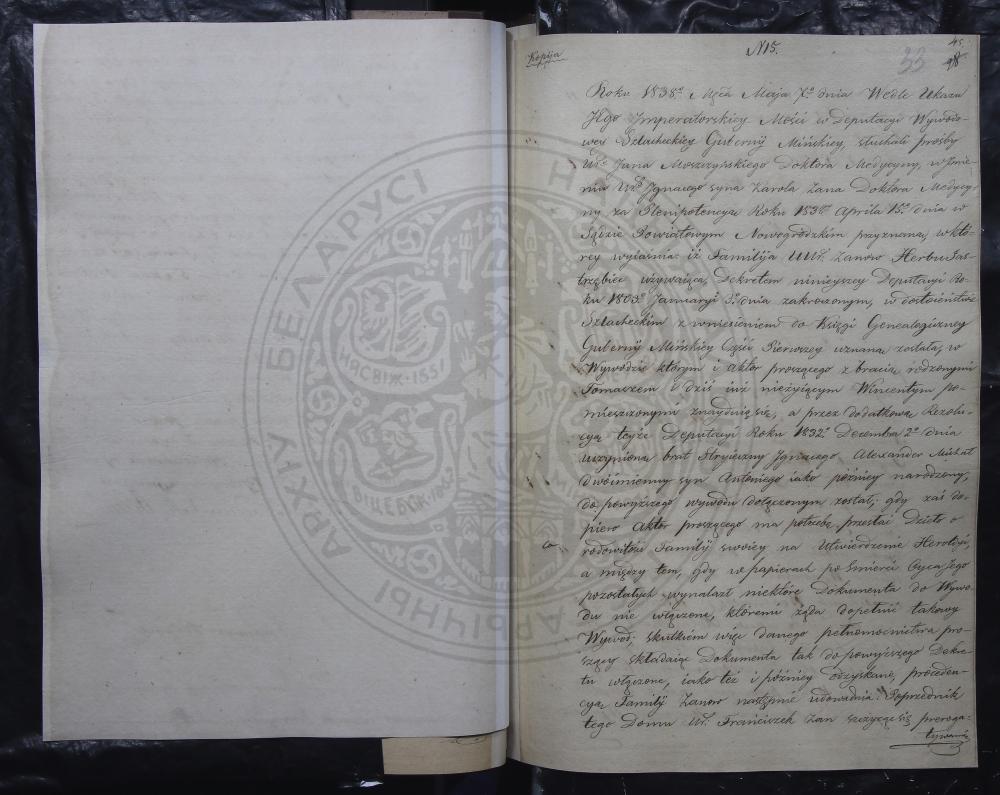 Kopija
N15.
45
33 98
Roku 1838º Mca Maja 7º dnia Wedle Ukazu
JEgo Imperatorskiey Mości w Deputacyi Wywodo-
wey Szlacheckiey Gubernij Mińskiey, słuchali prośby
Wº Jana Moszczyńskiego Doktora Medycyny, w Jmie-
niu Wº Jgnacego syna Karola Zana Doktora Medycy-
ny za Plenipotencyą Roku 1838º Aprila 15º dnia w
Sądzie Powiatowym Nowogródzkim przyznaną, w któ-
rey wyiaśnia: iż Familija WW. Zanow Herbu Jas-
trzębiec używaiąca, Dekretem ninieyszey Deputacyi Ro-
ku 1803º Januaryi 3º dnia zakroczonym, w dostoieństwie
Szlacheckim z wniesieniem do Księgi Genealogiczney
Gubernij Mińskiey Części Pierwszey uznaną została, w
Wywodzie którym i aktor proszącego z bracią rodzonymi
Tomaszem i dziś iuż nieżyiącym Wincentym po-
mieszczonymi znayduią się, a przez dodatkową Rezolu-
cyą teyże Deputacyi Roku 1832º Decembra 2º dnia
uczynioną brat Stryieczny Jgnacego Alexander Michał
dwóimienny syn Antoniego iako późniey narodzony,
do powyższego wywodu dołączonym został; gdy zaś do-
piero Aktor proszącego ma potrzebę przesłać Dzieło o
rodowitości Familij swoiey na Utwierdzenie Heroldyi,
a między tem, gdy w papierach po śmierci Oyca Jego
pozostałych wynalazł niektóre Dokumenta do Wywo-
du nie włączone, któremi żąda dopełnić takowy
Wywod; skutkiem więc danego pełnomocnictwa pro-
szący składaiąc Dokumenta tak do powyższego Dekre-
tu włączone, iako też i późniey odzyskane, proceden-
cyą Familij Zanow następnie udowadnia: Poprzednik
tego Domu W. Franciszek Zan szczycąc się preroga-
tywami